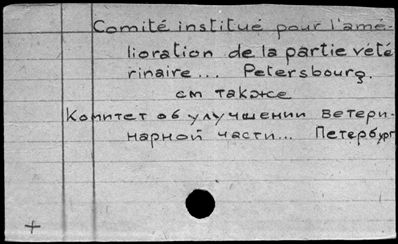 Comité institué pour l'amé-
lioration de la partie vété
rinaire... Petersbourg.
см также
Комитет об улучшении ветери-
нарной части... Петербург